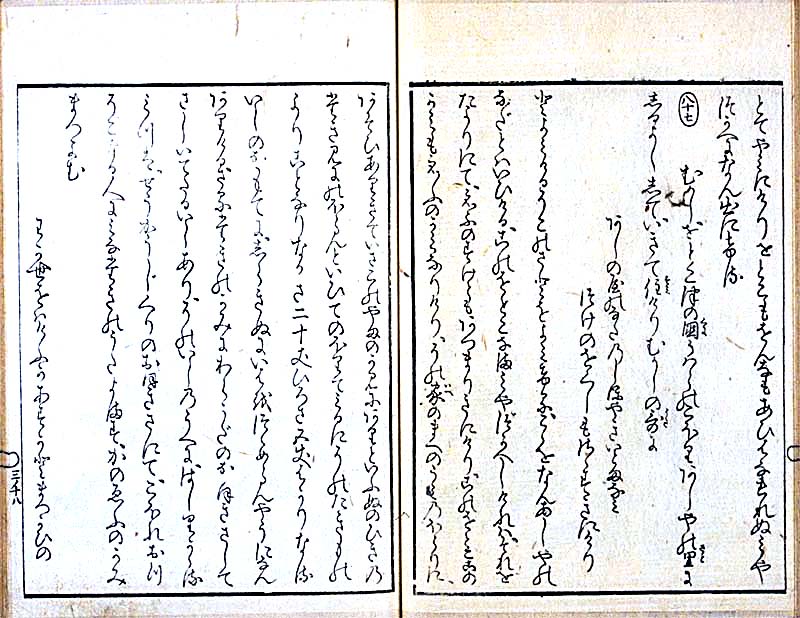 とてやみにけりをとこも女もあひはなれぬみや
つかへになん出にける
八十七
むかしをとこ津の國うはらのこほりあしやの里に
しるよししていきて住けりむかしの哥に
あしの屋のなたのしほやきいとまなみ
つけのをくしもさゝすきにけり
とよみけるそこのさとをよみけるこゝをなんあしやの
なたとはいひけるこのをとこなまみやつかへしけれはそれを
たよりにてゑふのすけともあつまりきにけりこのをとこのこの
かみもゑふのかみなりけりその家のまへのうみのほとりに
あそひありきていさこの山のかみにありといふぬのひきの
たきみにのほらんといひてのほりてみるにそのたきもの
よりことなりなかさ二十丈ひろさ五丈はかりなる
いしのおもてにしらきぬにいはをつゝめらんやうになん
ありけるさるたきのかみにわらうたのおほきさして
さしいてたるいしありそのいしのうへにはしりかゝる
みつはせうかうしくりのおほきさにてこほれおつ
そこなる人にみなたきのうたよますかのゑふのかみ
まつよむ
わか世をはけふかあすかとまつかひの
三十八